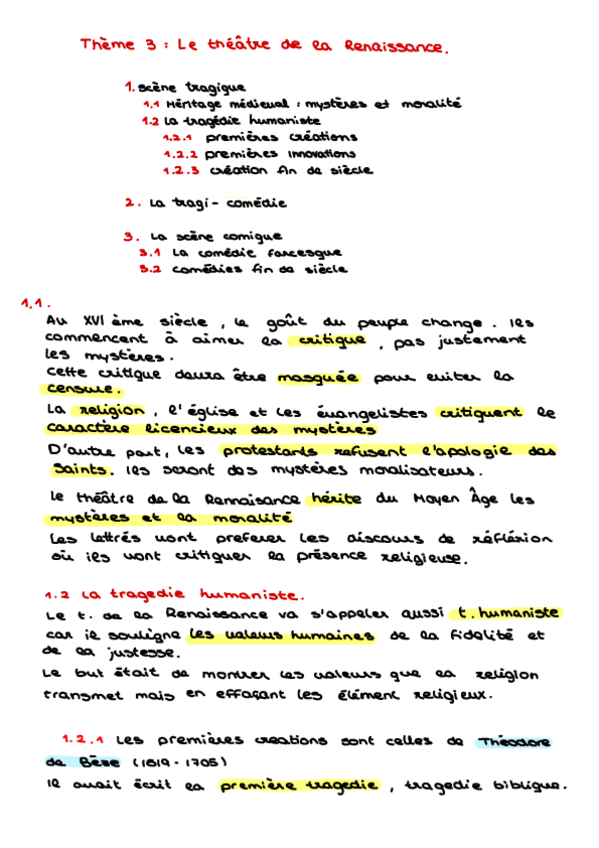 Thème 3 : Le théâtre de la Renaissance.
1. scène tragique
1.1 Héritage médiéval : mystères et moralité
1.2 La tragédie humaniste
1.2.1 premières créations
1.2.2 premières innovations
1.2.3 création fin de siècle
2. La tragi-comédie
3. La scène comique
3.1 La comédie farcesque
3.2 comédies fin de siècle
1.1.
Au XVI ème siècle, le goût du peuple change. Iles
commencent à aimer la critique, pas justement
les mystères.
Cette critique devra être masquée pour eviter la
censure.
La religion, l'église et les évangelistes critiquent le
caractère licencieux des mystères
D'autre part, les protestants refusent l'apologie des
Saints. Iles seront des mystères moralisateurs.
le théâtre de la Rennaisance hérite du Moyen Âge les
mystères et la moralité
Les lettrés vont preferer les discours de réfléxion
où iles vont critiquer la présence religieuse.
1.2 La tragedie humaniste.
Le t. de la Renaissance va s'appeler aussi t. humaniste
car il souligne les valeurs humaines de la fidelité et
de la justesse.
Le but était de montrer les valeurs que la religion
transmet mais en effaçant les élément religieux.
1.2.1 Les premières creations sont celles de Théodore
de Bèze (1619 - 1705)
Il avait écrit la première tragedie, tragedie biblique.